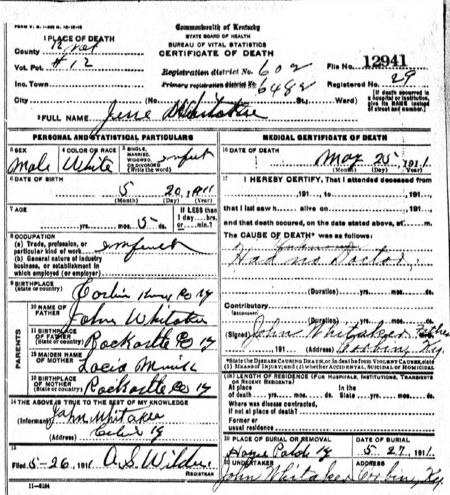 FORM V. S. 1-
Commonwealth of Kentucky
STATE BOARD OF HEALTH
BUREAU OF VITAL STATISTICS
CERTIFICATE OF DEATH
1 PLACE OF DEATH
County Knox
Vot. Pct. #12
Inc. Town
City (No. St.; Ward)
Registration district No. 602
Primary registration district No. 6482
File No. 12941
Registered No. 29
(If death occurred in a hospital or institution, give its NAME instead of street and number.)
2 FULL NAME Whitaker
PERSONAL AND STATISTICAL PARTICULARS
3 SEX Male
4 COLOR OR RACE White
5 SINGLE, MARRIED, WIDOWED, OR DIVORCED (Write the word) infant
6 DATE OF BIRTH 5 20, 1911
(Month) (Day) (Year)
7 AGE yrs. mos. 5 ds.
If LESS than 1 day, hrs. or min.?
8 OCCUPATION
(a) Trade, profession, or particular kind of work
(b) General nature of industry business, or establishment in which employed (or employer)
9 BIRTHPLACE (State or country) Corbin Co Ky
PARENTS
10 NAME OF FATHER John Whitaker
11 BIRTHPLACE OF FATHER (State or country) Rockcastle Co Ky
12 MAIDEN NAME OF MOTHER
13 BIRTHPLACE OF MOTHER (State or country) Rockcastle Co Ky
14 THE ABOVE IS TRUE TO THE BEST OF MY KNOWLEDGE
(Informant) John Whitaker
(Address) Ky
15
Filed 5-26, 1911 A. S. Wilder
REGISTRAR
11-6184
MEDICAL CERTIFICATE OF DEATH
16 DATE OF DEATH May 25, 1911
(Month) (Day) (Year)
17 I HEREBY CERTIFY, That I attended deceased from
191 , to 191 ,
that I last saw h alive on 191 ,
and that death occured, on the date stated above, at m.
The CAUSE OF DEATH* was as follows:
Had no Doctor
(Duration) yrs. mos. ds.
Contributory
(Duration) yrs. mos. ds.
(Signed) John Whitaker Father
191 , (Address) Corbin, Ky.
*State the DISEASE CAUSING DEATH, or in deaths from VIOLENT CAUSES, state (1) MEANS OF INJURY; and (2) whether ACCIDENTAL, SUICIDAL or HOMICIDAL
18 LENGTH OF RESIDENCE (FOR HOSPITALS, INSTITUTIONS, TRANSIENTS OR RECENT RESIDENTS)
At place of death yrs. mos. ds. In the State yrs. mos. ds.
Where was disease contracted, if not at place of death?
Former or usual residence
19 PLACE OF BURIAL OR REMOVAL
DATE OF BURIAL 5 27, 1911
20 UNDERTAKER John Whitaker
ADDRESS Corbin, Ky.